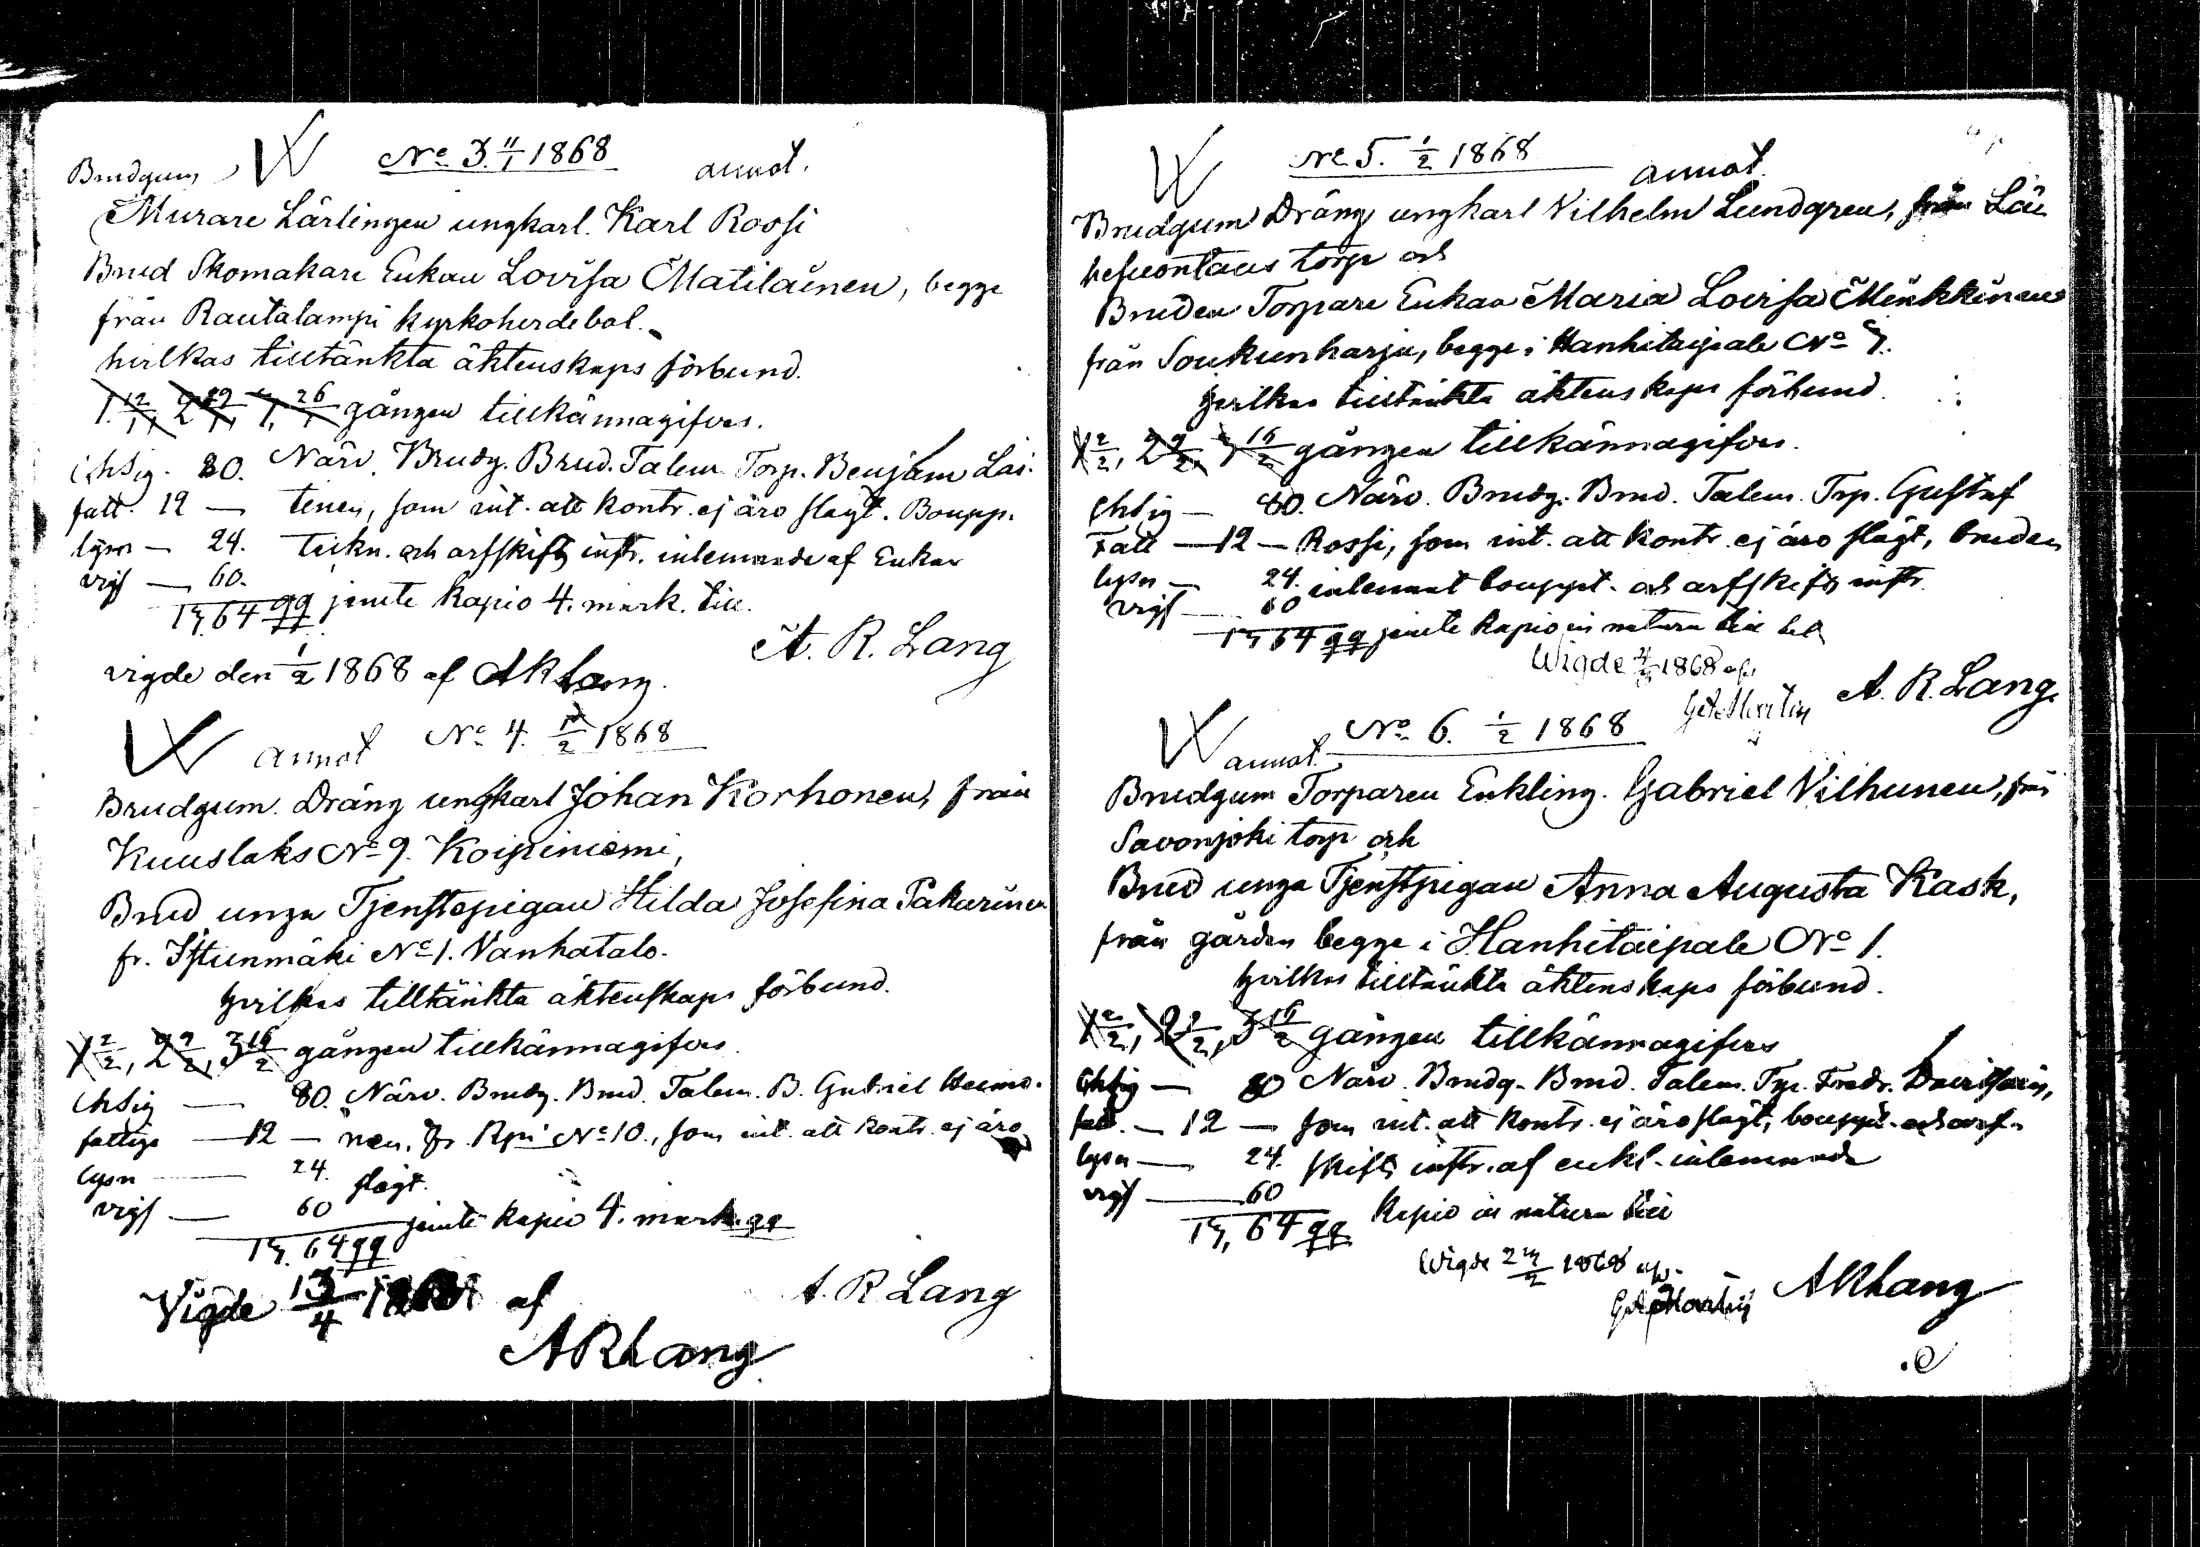 No 3. 11/1 1868 annot.
Brudgum
Murare Lärlingen ungkarl. Karl Rossi
Brud Skomakare Enkan Lovisa Matilainen, begge
från Rautalampi kyrkoherdebol.
hvilkas tilltänkta äktenskaps förbund.
1. 12/1, 2 19/1, 26/1 gången tillkännagifves.
80. Närv. Brudg. Brud. Talem. Torp. Benjam Lai-
fatt. 12 — tinen, som int. att kontr. ej äro slägt. Boupp.
lysn — 24. tekn. och arfskifts instr. inlemnade af Enkan
vigs — 60.
1, 64 jemte kapio 4. mark. till.
A. R. Lang
vigde den 1/2 1868 af ARLang.
annot No 4. /2 1868
Brudgum. Dräng ungkarl Johan Korhonen, från
Kuuslaks No 9. Koipiniemi,
Brud unga Tjenstepigan Hilda Josefina Pakarinen
fr. Istunmäki No 1. Vanhatalo.
hvilkas tilltänkta äktenskaps förbund.
1 2/2, 2 9/2, 3 16/2 gången tillkännagifves.
80. Närv. Brudg. Brud. Talem. B. Gabriel
fattiga — 12 — nen, fr. Kpi No 10., som int. att kontr. ej äro
lysn — 24. slägt.
vigs — 60 jemte kapio 4. mark.
1, 64
Vigde 13/4 af
A. R Lang
ARLang
No 5. 1/2 1868 annot.
Brudgum Dräng ungkarl Vilhelm Lundgren, från
torp och
Bruden Torpare Enkan Maria Lovisa Minkkinen
från Soukunharju, begge i Hanhitaipale No 7.
hvilkas tilltänkta äktenskaps förbund.
1 2/2, 2 9/2, 16/2 gången tillkännagifves.
80. Närv. Brudg. Brud. Talem. Trp. Gustaf
Fatt — 12 — Rossi, som int. att kontr. ej äro slägt, bruden
lysn — 24. inlemnat bouppt. och arfskifts instr.
vigs — 60
1, 64 jemte kapio in natura till
Wigde 1868 af
A. R. Lang.
annot. No 6. 1/2 1868
Brudgum Torparen Enkling. Gabriel Vilhunen, från
Savonjoki torp och
Brud unga Tjenstpigan Anna Augusta Kask,
från gården begge i Hanhitaipale No 1.
hvilkas tilltänkta äktenskaps förbund.
1 2/2, 2 9/2, 3 16/2 gången tillkännagifves
80 Närv. Brudg. Brud. Talem. Fredr.
fatt. — 12 — som int. att kontr. ej äro slägt, bouppt. och arf-
lysn — 24. skifts instr. af enkl. inlemnade
vigs — 60
1, 64 kapio in natura till
Wigde 1868 af
ARLang